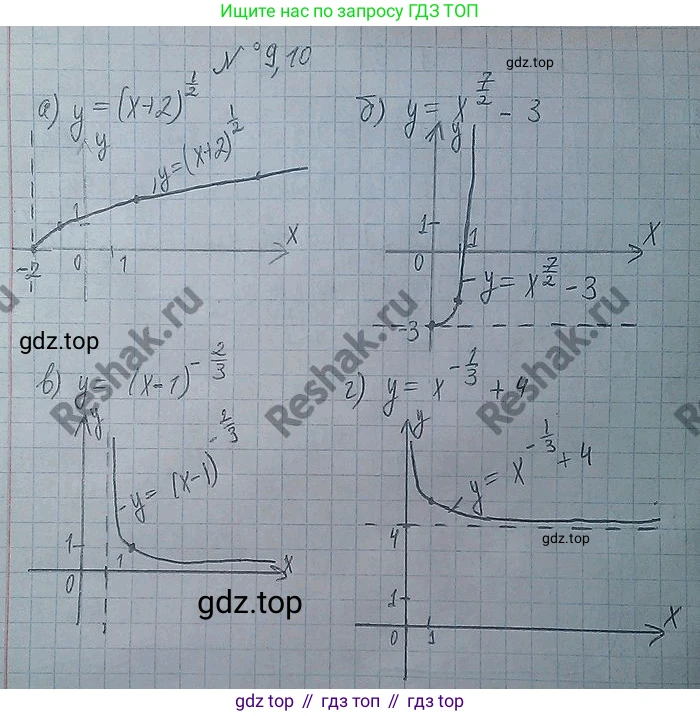 Ищите нас по запросу ГДЗ ТОП
№ 9,10
gdz.top
а) y = (x+2)^{\frac{1}{2}}
б) y = x^{\frac{7}{2}} - 3
y
y = (x+2)^{\frac{1}{2}}
1
x
-2
0
1
y
1
x
0
1
y = x^{\frac{7}{2}} - 3
-3
gdz.top
Reshak.ru
Reshak.ru
Reshak.ru
в) y = (x-1)^{-\frac{2}{3}}
г) y = x^{-\frac{1}{3}} + 4
y
y = (x-1)^{-\frac{2}{3}}
1
1
x
0
y
y = x^{-\frac{1}{3}} + 4
4
gdz.top
1
x
0
1
gdz.top
gdz.top // гдз топ // гдз.top